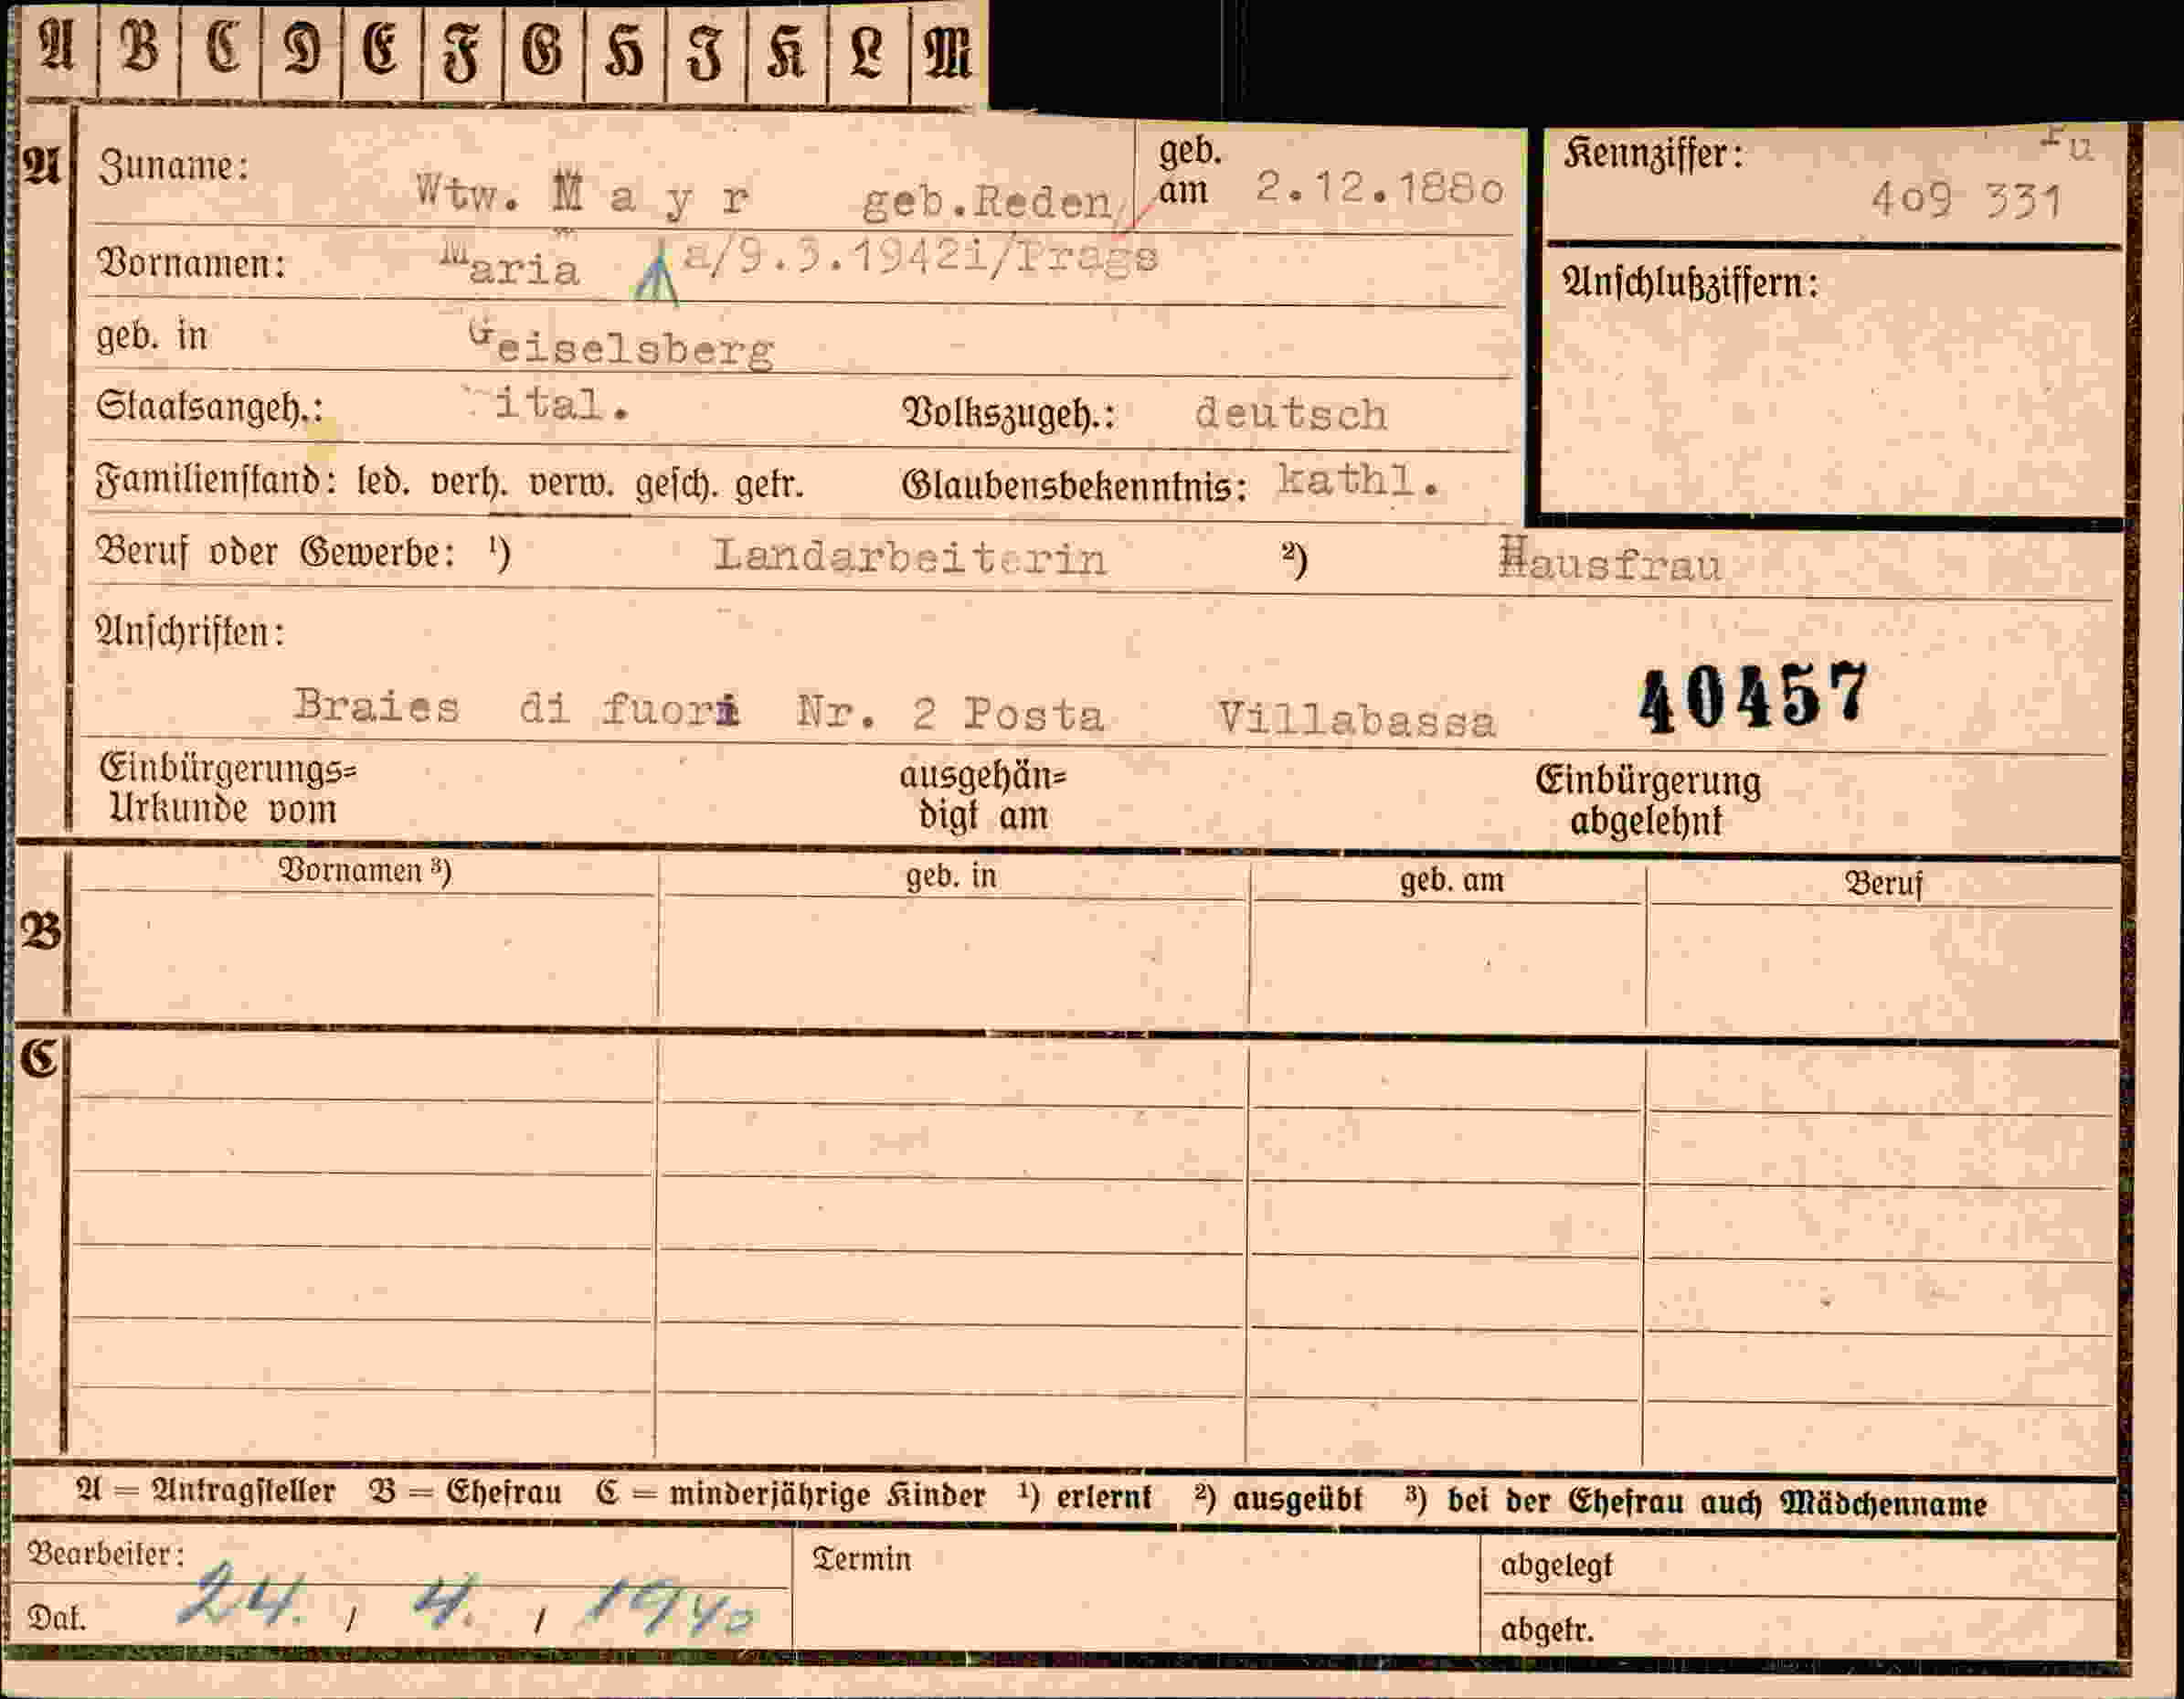 A B C D E F G H I K L M
A Zuname: Wtw. M a y r geb.Reden geb. am 2.12.188o
Kennziffer: 4o9 331
Vornamen: Maria a/9.3.1942i/Prags
Anschlußziffern:
geb. in Geiselsberg
Staatsangeh.: ital. Volkszugeh.: deutsch
Familienstand: led. verh. verw. gesch. getr. Glaubensbekenntnis: kathl.
Beruf oder Gewerbe: ¹) Landarbeiterin ²) Hausfrau
Anschriften:
Braies di fuori Nr. 2 Posta Villabassa 40457
Einbürgerungs= ausgehän= Einbürgerung
Urkunde vom digt am abgelehnt
Vornamen ³) geb. in geb. am Beruf
B
C
A = Antragsteller B = Ehefrau C = minderjährige Kinder ¹) erlernt ²) ausgeübt ³) bei der Ehefrau auch Mädchenname
Bearbeiter: Termin abgelegt
Dat. 24. / 4. / 1940 abgetr.